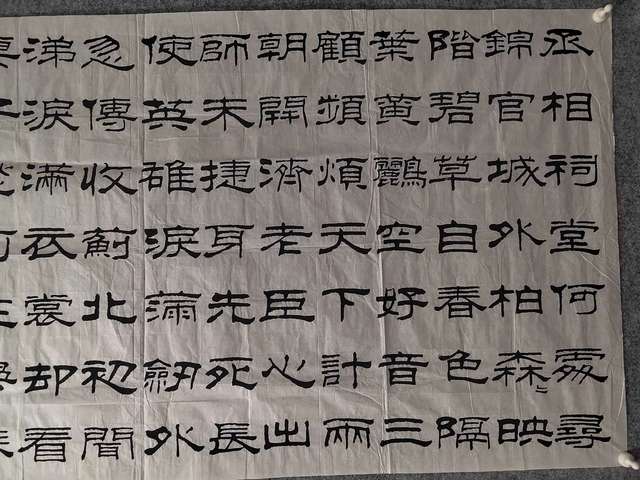 丞相祠堂何處尋
錦官城外柏森〻映
階碧草自春色隔
葉黄鸝空好音三
顧頻煩天下計兩
朝開濟老臣心出
師未捷身先死長
使英雄淚滿劒外
忽傳收薊北初聞
涕淚滿衣裳却看